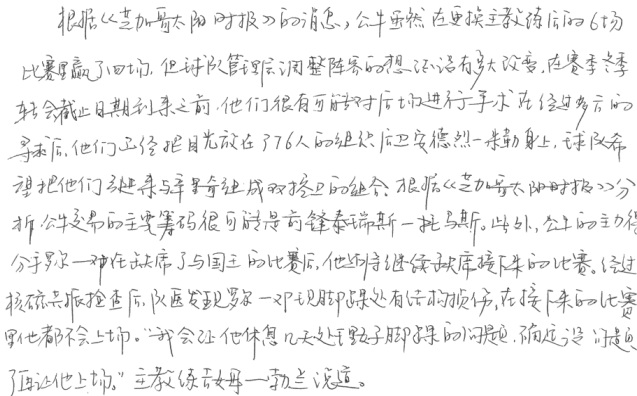 根据《芝加哥太阳时报》的消息,公牛虽然在更换主教练后的6场
比赛里赢了四场,但球队管理层调整阵容的想法还没有多大改变,在赛季冬季
转会截止日期到来之前,他们很有可能对后场进行寻求在经过多方的
寻求后,他们已经把目光放在了76人的组织后卫安德烈一米勒身上,球队希
望把他们引进来与辛里奇组成双控卫的组合。根据《芝加哥太阳时报》分
析公牛交易的主要筹码很可能是前锋泰瑞斯一托马斯。此外,公牛的主力得
分手罗尔一邓在缺席了与国王的比赛后,他还将继续缺席接下来的比赛。经过
核磁共振检查后,队医发现罗尔一邓现脚踝处有结构损伤,在接下来的比赛
里他都不会上场。“我会让他休息几天处理好脚踝的问题,确定没问题
了再让他上场。”主教练吉姆一勃兰说道。